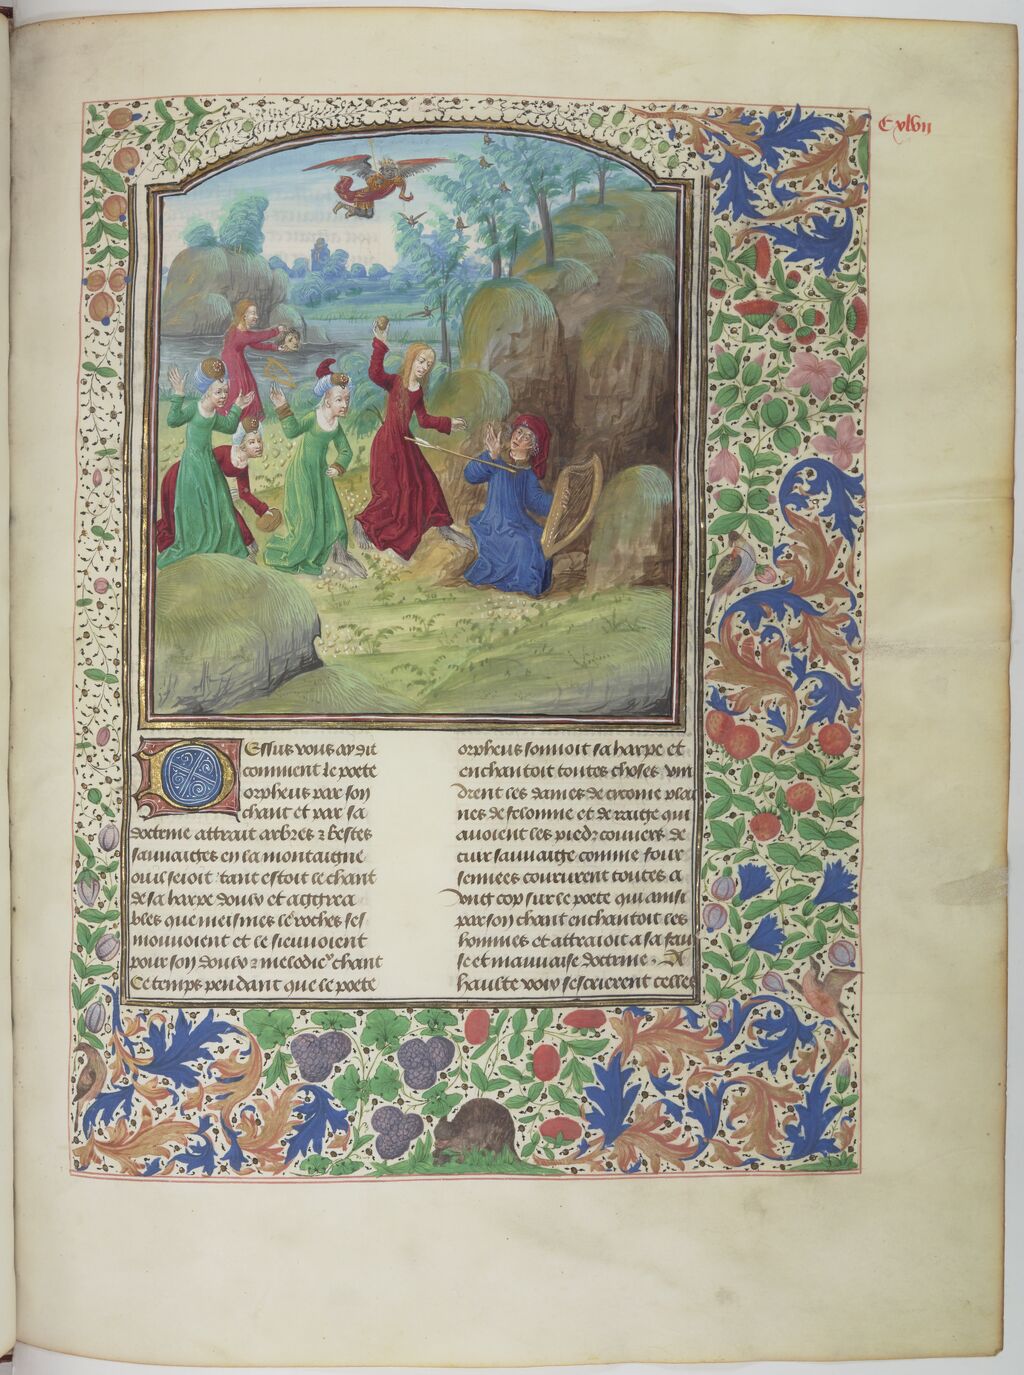 C xlvii
Dessus vous ay dit
comment le poete
orpheus par son
chant et par sa
doctrine attrait arbres ⁊ bestes
sauvaiges en la montaigne
ou il seoit tant estoit le chant
de sa harpe doulx et aggrea
bles que meismes les roches ses
mouvoient et le sieuvoient
pour son doulx ⁊ melodieux chant
Ce temps pendant que le poete
orpheus sonnoit sa harpe et
enchantoit toutes choses vin
drent les dames de cyconie plai
nes de felonnie et de raige qui
avoient les piedz couvers de
cuir sauvaige comme four
sennees coururent toutes a
vng cop sur le poete qui ainsi
par son chant enchantoit les
hommes et attraioit a sa faul
se et mauvaise doctrine. A
haulte voix sescrierent celles